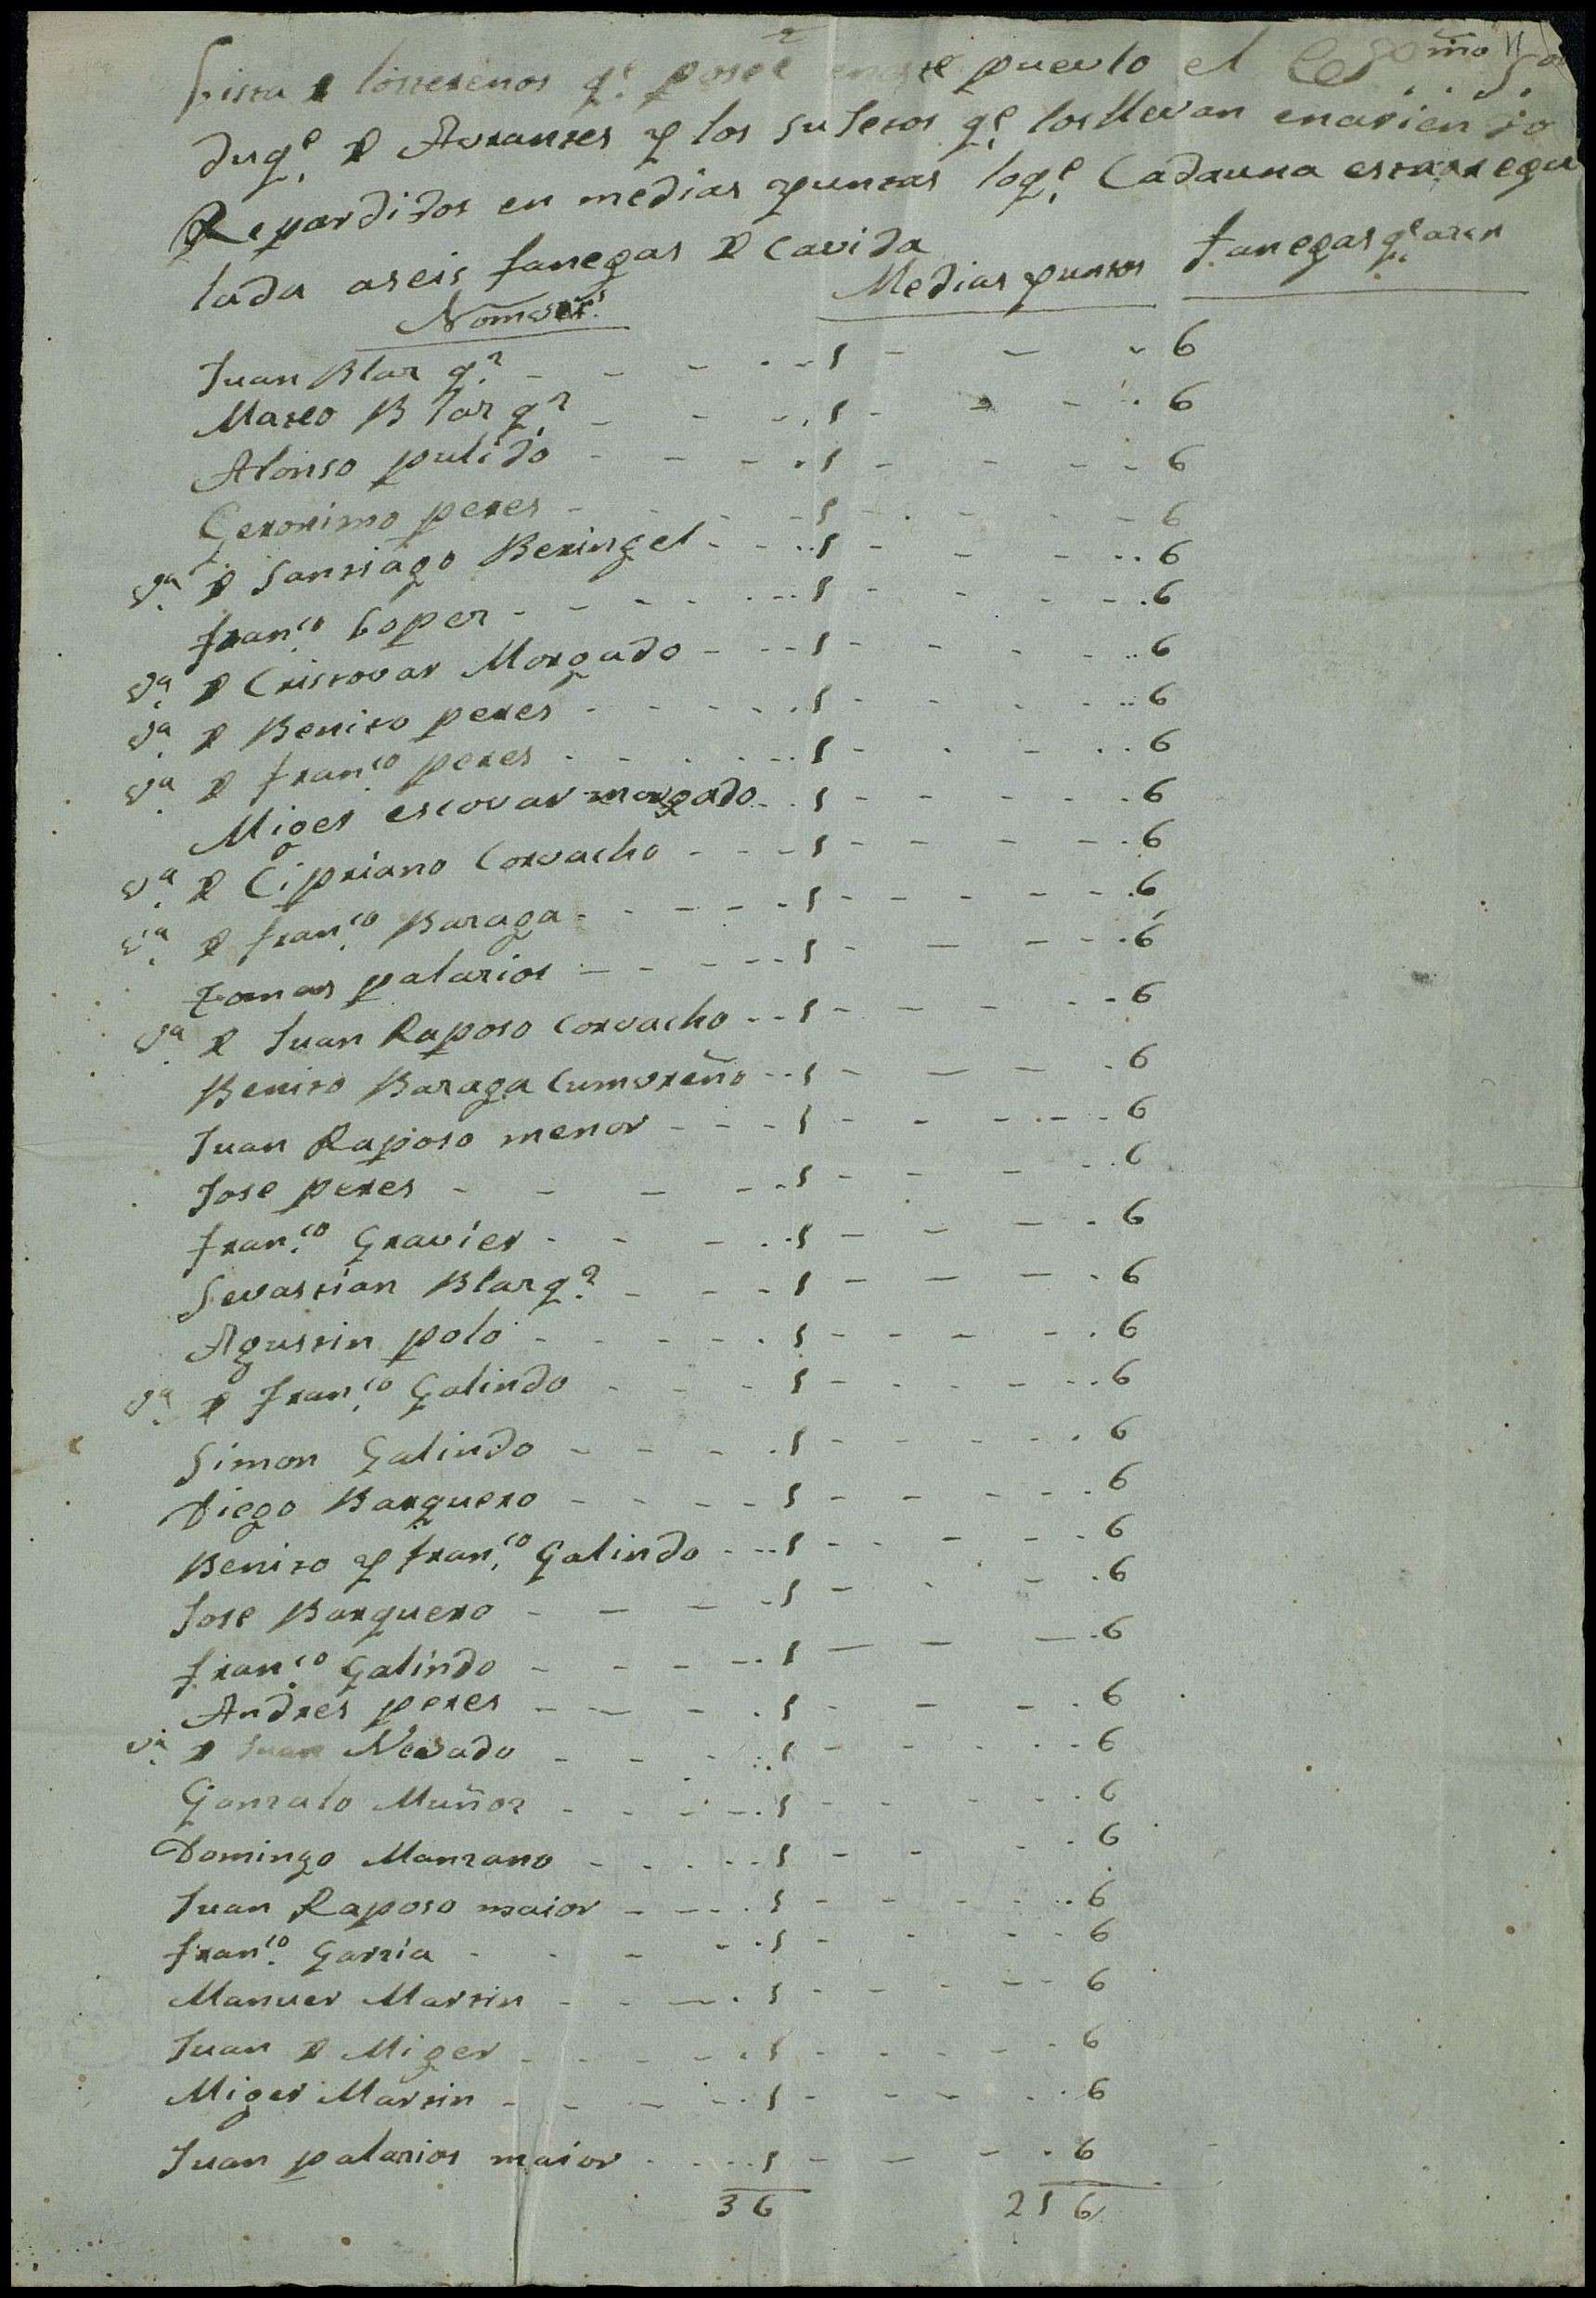 Lista de losterenos q.e posee eneste puevlo el Ce Sor
duq.e de Avrantes y los suJetos q.e losllevan enariendo
Repardidos en medias yuntas loq.e Cadauna estaregu
lada aseis fanegas de Cavida
Nomvres Medias yuntas fanegas q.e acen
Juan Blaz q.z - - - 1 - - - 6
Mateo Blaz q.z - - - 1 - - - 6
Alonso pulido - - - 1 - - - 6
Geronimo peres - - - 1 - - - 6
v.a de Santiago Beringel - - - 1 - - - 6
fran.co Loper - - - 1 - - - 6
v.a de Cristovar Morgado - - - 1 - - - 6
v.a de Benito peres - - - 1 - - - 6
v.a de fran.co peres - - - 1 - - - 6
Miger escovar morgado - - - 1 - - - 6
v.a de Cipriano Corvacho - - - 1 - - - 6
v.a de fran.co Baraga - - - 1 - - - 6
tomas palazios - - - 1 - - - 6
v.a de Juan Raposo Corvacho - - - 1 - - - 6
Benito Baraga Cumvreño - - - 1 - - - 6
Juan Raposo menor - - - 1 - - - 6
Jose peres - - - 1 - - - 6
fran.co Gravier - - - 1 - - - 6
Sevastian Blaz q.z - - - 1 - - - 6
Agustin polo - - - 1 - - - 6
v.a de fran.co Galindo - - - 1 - - - 6
Simon Galindo - - - 1 - - - 6
Diego Barquero - - - 1 - - - 6
Benito y fran.co Galindo - - - 1 - - - 6
Jose Barquero - - - 1 - - - 6
fran.co Galindo - - - 1 - - - 6
Andres peres - - - 1 - - - 6
v.a de Juan Nevado - - - 1 - - - 6
Gonzalo Muñoz - - - 1 - - - 6
Domingo Manzano - - - 1 - - - 6
Juan Raposo maior - - - 1 - - - 6
fran.co Garzia - - - 1 - - - 6
Manuer Martin - - - 1 - - - 6
Juan de Miger - - - 1 - - - 6
Miger Martin - - - 1 - - - 6
Juan palazios maior - - - 1 - - - 6
36 216